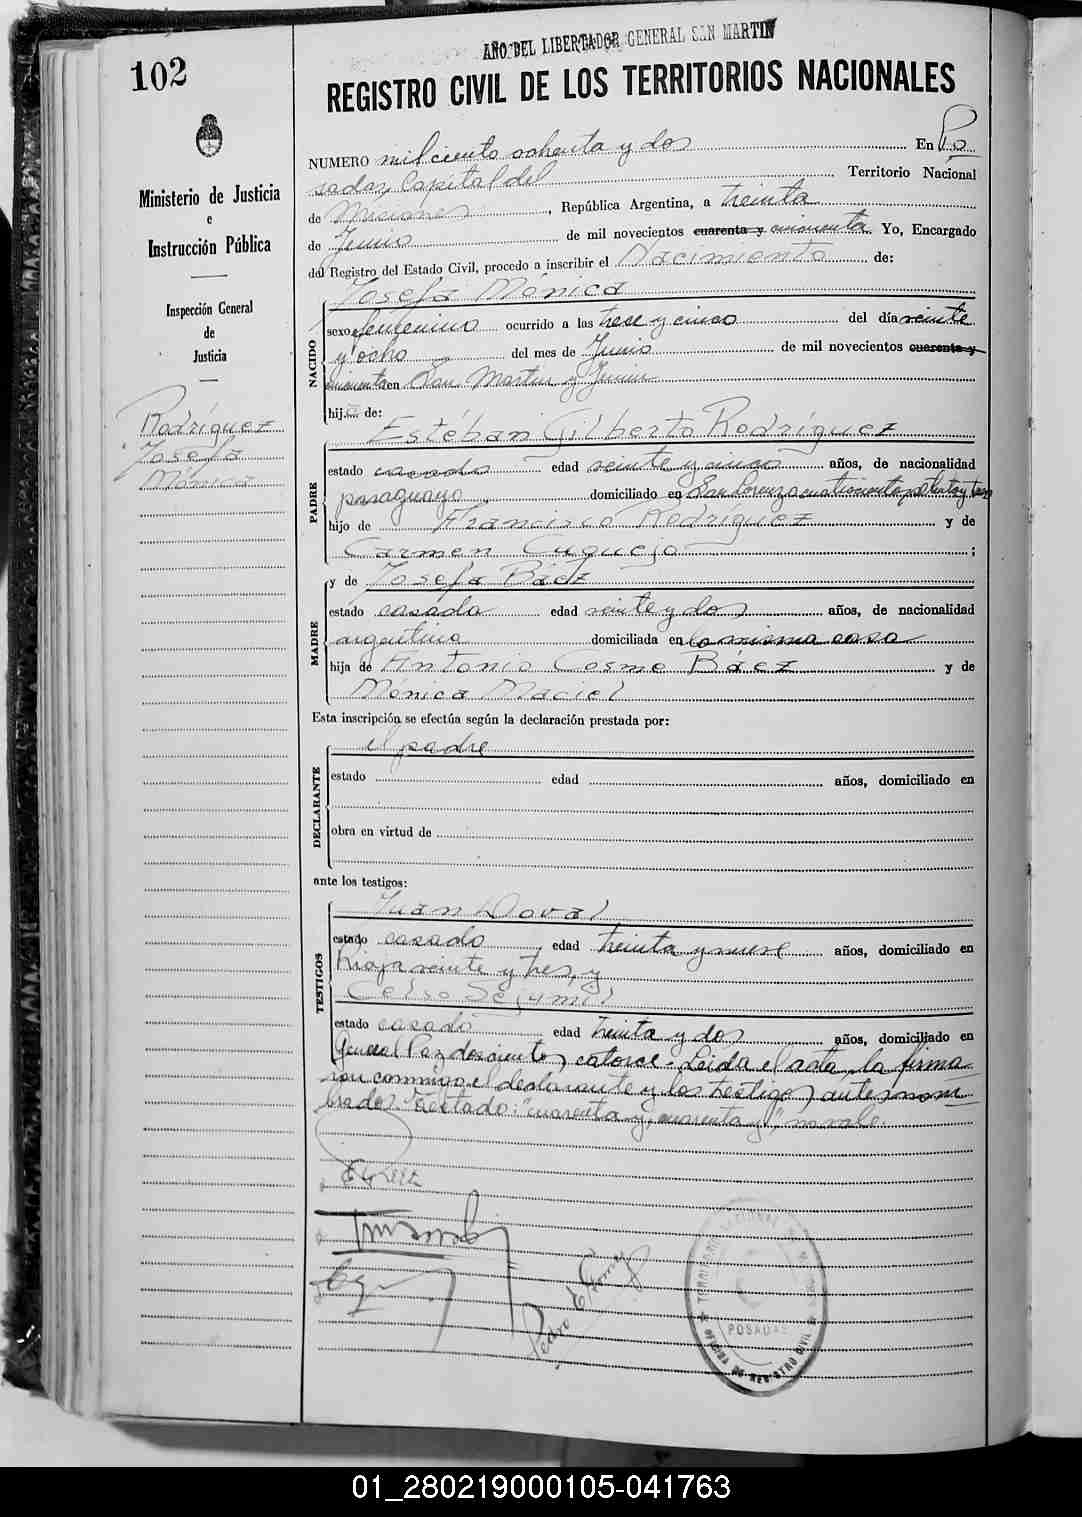 AÑO DEL LIBERTADOR GENERAL SAN MARTIN
102
REGISTRO CIVIL DE LOS TERRITORIOS NACIONALES
Ministerio de Justicia
e
Instrucción Pública
Inspección General
de
Justicia
Rodríguez
Josefa
Mónica
NUMERO mil ciento ochenta y dos En Po
sadas, Capital del Territorio Nacional
de Misiones, República Argentina, a treinta
de Junio de mil novecientos cuarenta y cincuenta. Yo, Encargado
del Registro del Estado Civil, procedo a inscribir el Nacimiento de:
NACIDO
Josefa Mónica
sexo femenino ocurrido a las trece y cinco del día veinte
y ocho del mes de Junio de mil novecientos cuarenta y
cincuenta en San Martín y Junín
hij a de:
PADRE
Estéban Gilberto Rodríguez
estado casado edad veinte y cinco años, de nacionalidad
paraguayo domiciliado en San Lorenzo
hijo de Francisco Rodríguez y de
Carmen Cuquejo ;
MADRE
y de Josefa Báez
estado casada edad veinte y dos años, de nacionalidad
argentina domiciliada en la misma casa
hija de Antonio Cosme Báez y de
Mónica Maciel
Esta inscripción se efectúa según la declaración prestada por:
DECLARANTE
el padre
estado edad años, domiciliado en
obra en virtud de
ante los testigos:
TESTIGOS
Juan Doval
estado casado edad treinta y nueve años, domiciliado en
Rioja veinte y tres, y
Celso
estado casado edad treinta y dos años, domiciliado en
General Paz doscientos catorce. Leida el acta, la firma
ron conmigo el declarante y los testigos antes nom
brados. Testado: "cuarenta y, cuarenta y", no vale.
TERRITORIO NACIONAL DE MISIONES
POSADAS
OFICINA DE REGISTRO CIVIL
01_280219000105-041763